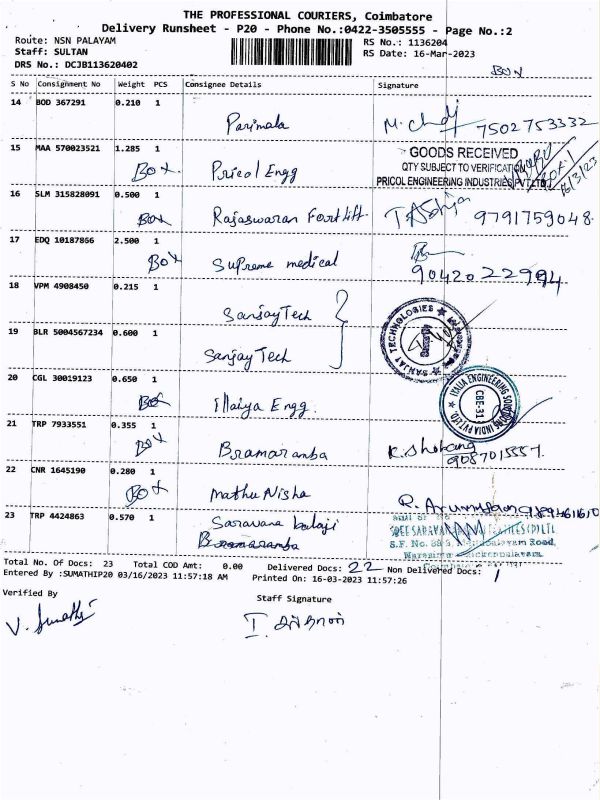 THE PROFESSIONAL COURIERS, Coimbatore
Delivery Runsheet - P20 - Phone No.:0422-3505555 - Page No.:2
Route: NSN PALAYAM RS No.: 1136204
Staff: SULTAN RS Date: 16-Mar-2023
DRS No.: DCJB113620402
BOX
S No Consignment No Weight PCS Consignee Details Signature
14 BOD 367291 0.210 1
Parimala 7502753332
15 MAA 570023521 1.285 1
GOODS RECEIVED
QTY SUBJECT TO VERIFICATION
PRICOL ENGINEERING INDUSTRIES PVT LTD
Box Pricol Engg
16/3/23
16 SLM 315828091 0.500 1
Box Rajaswaran Forklift 9791759048
17 EDQ 10187866 2.500 1
Box Supreme medical
18 VPM 4908450 0.215 1
Sanjay Tech
SANJAY TECHNOLOGIES
19 BLR 5004567234 0.600 1
Sanjay Tech
20 CGL 30019123 0.650 1
Box Illaiya Engg.
ITALIA ENGINEERING SOLUTIONS INDIA PVT LTD
CBE-31
21 TRP 7933551 0.355 1
Box Bramaramba K. Shobana
9087015557
22 CNR 1645190 0.280 1
Box Mathu Nisha
R. Arumugam
23 TRP 4424863 0.570 1
Saravana balaji
Bramaramba
S.F. No.
Road,
Total No. Of Docs: 23 Total COD Amt: 0.00 Delivered Docs: 22 Non Delivered Docs: 1
Entered By :SUMATHIP20 03/16/2023 11:57:18 AM Printed On: 16-03-2023 11:57:26
Verified By Staff Signature
V. Sumathi